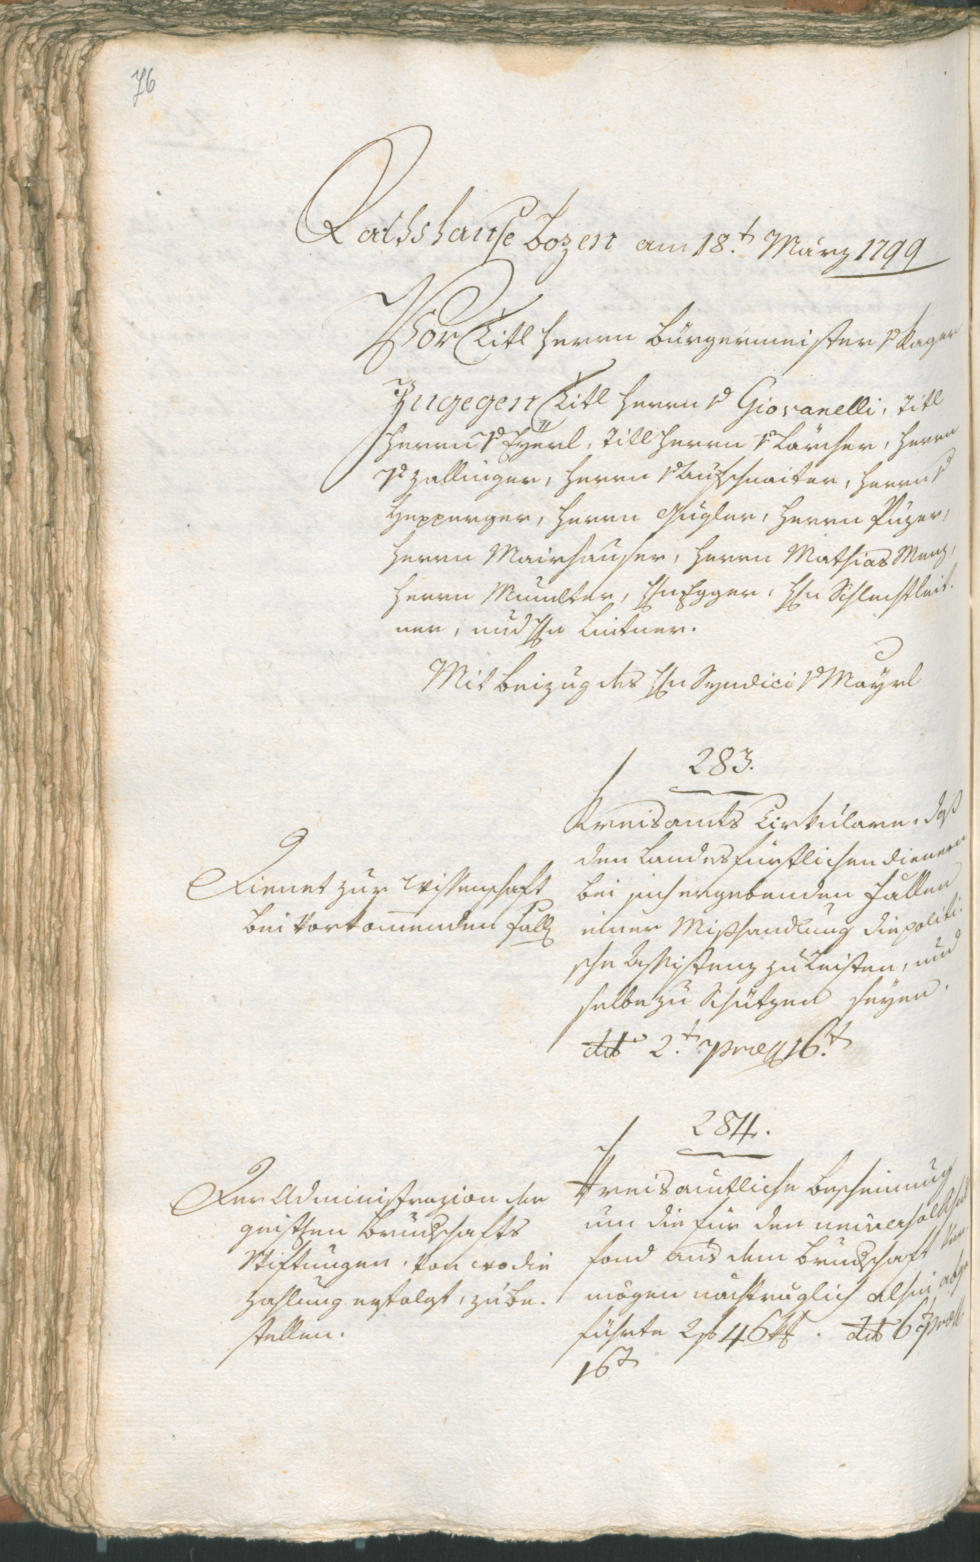 76
Rathshause Bozen am 18.t März 1799
Vor Titl Herrn Bürgermeister v Kager
Zugegen Titl Herrn v Giovanelli, Titl
Herrn v Eyerl, Titl Herrn v Larcher, Herrn
v Zallinger, Herrn v Aufschnaiter, Herrn v
Hepperger, Herrn Gugler, Herrn Puzer,
Herrn Mairhauser, Herrn Mathias Menz,
Herrn Mumelter, Hrn Egger, Hrn Schlechtleit-
ner, und Hrn Lintner.
Mit Beizug des Hrn Syndici v Mayrl
283.
Kreisamts Cirkulare, daß
den Landesfürstlichen Dienern
bei sich ergebenden Fällen
einer Mißhandlung die politi-
sche Assistenz zu leisten, und
selbe zu schützen seyen.
dto 2.t præs 16.t
Dienet zur Wissenschaft
bei vorkommenden Fall
284.
Kreisamtliche Bescheinung
um die für den
fond aus dem Bruderschaft Ver-
mögen nachträglich abge-
führte 2 f 46 x. dto 6t præs
16t
Der Administrazion der
geistlichen Bruderschafts
Stiftungen, von wo die
Zahlung erfolgt, zuzu-
stellen.